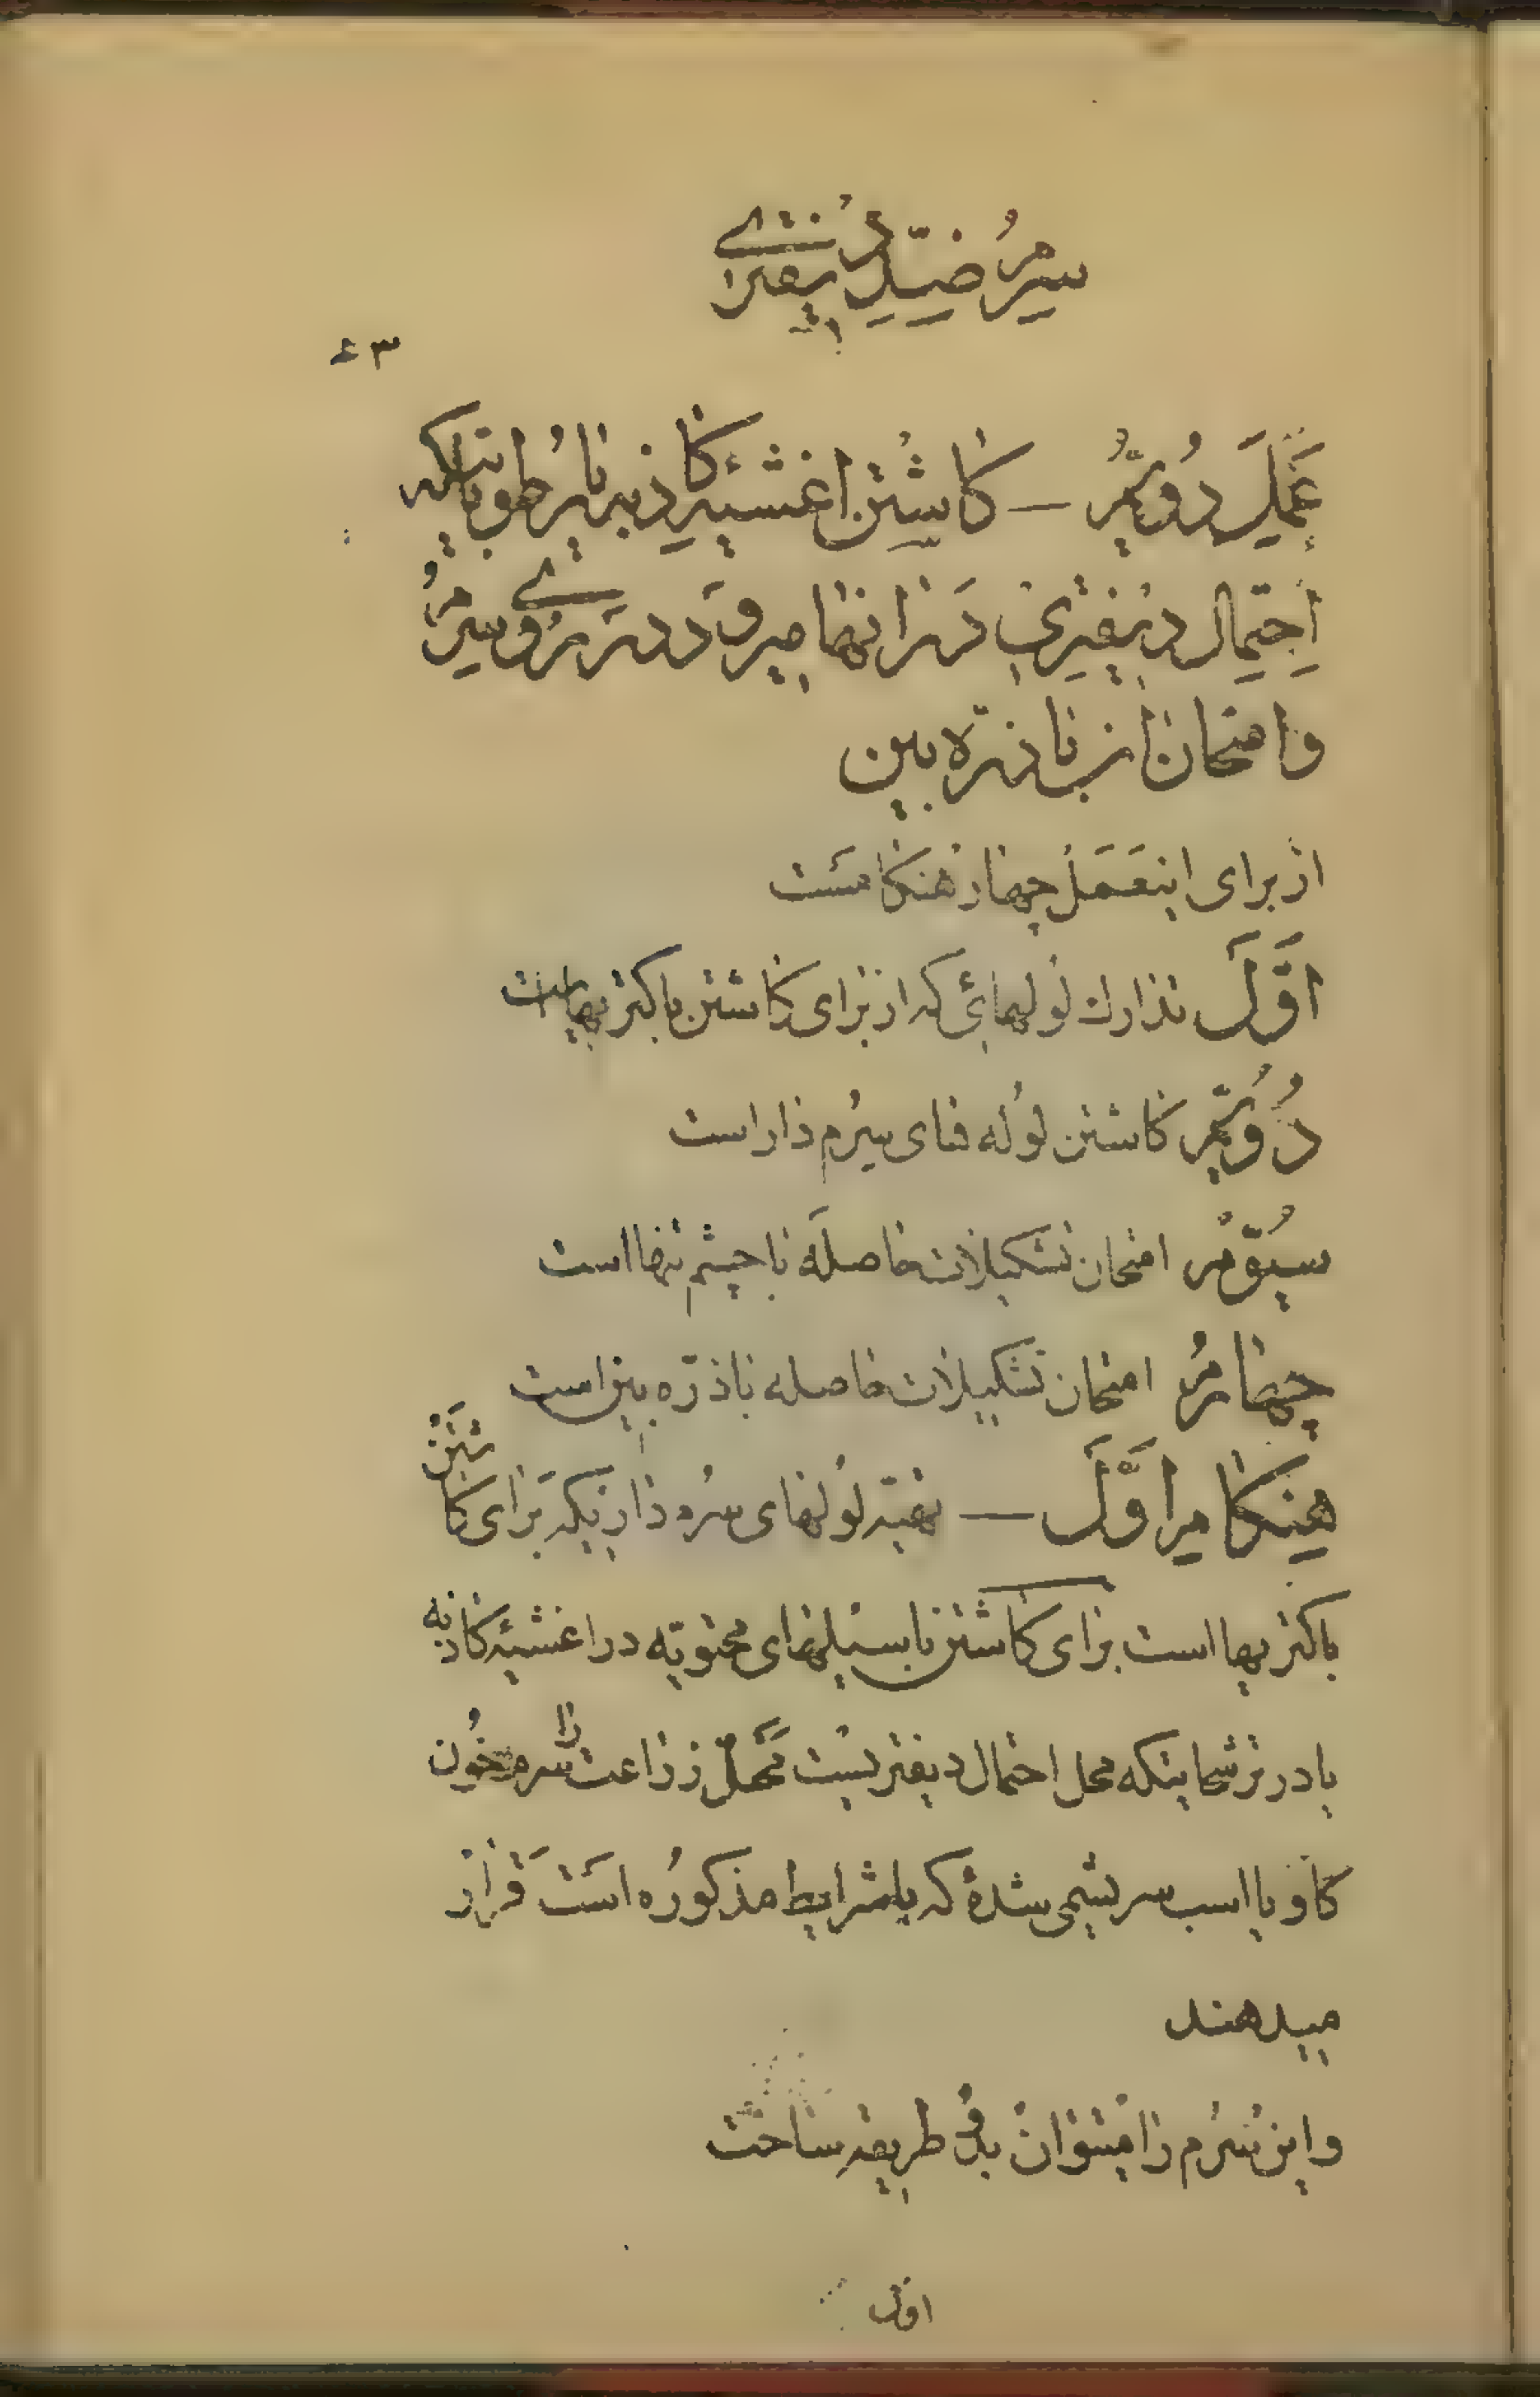 سرم ضد دیفتری
۴۳
عمل دویم — کاشتن اغشیه کاذبه یا رطوباتیکه
احتمال دیفتری در آنها میرود در روی سرم
و امتحان آن با ذره بین
از برای اینعمل چهار هنگامست
اول تدارک لولهائی که از برای کاشتن باکتریها است
دویم کاشتن لوله های سرم دار است
سیوم امتحان تشکیلات حاصله با چشم تنها است
چهارم امتحان تشکیلات حاصله با ذره بین است
هنگام اول — تهیه لولهای سرم داریکه برای کاشتن
باکتریها است برای کاشتن باسیلهای محتویه در اغشیه کاذبه
یا در ترشحاتیکه محل احتمال دیفتریست محل زراعت را سرم خون
کاو یا اسب سر بشمی شده که با شرایط مذکوره است قرار
میدهند
و این سرم را میتوان بدو طریقه ساخت
اول